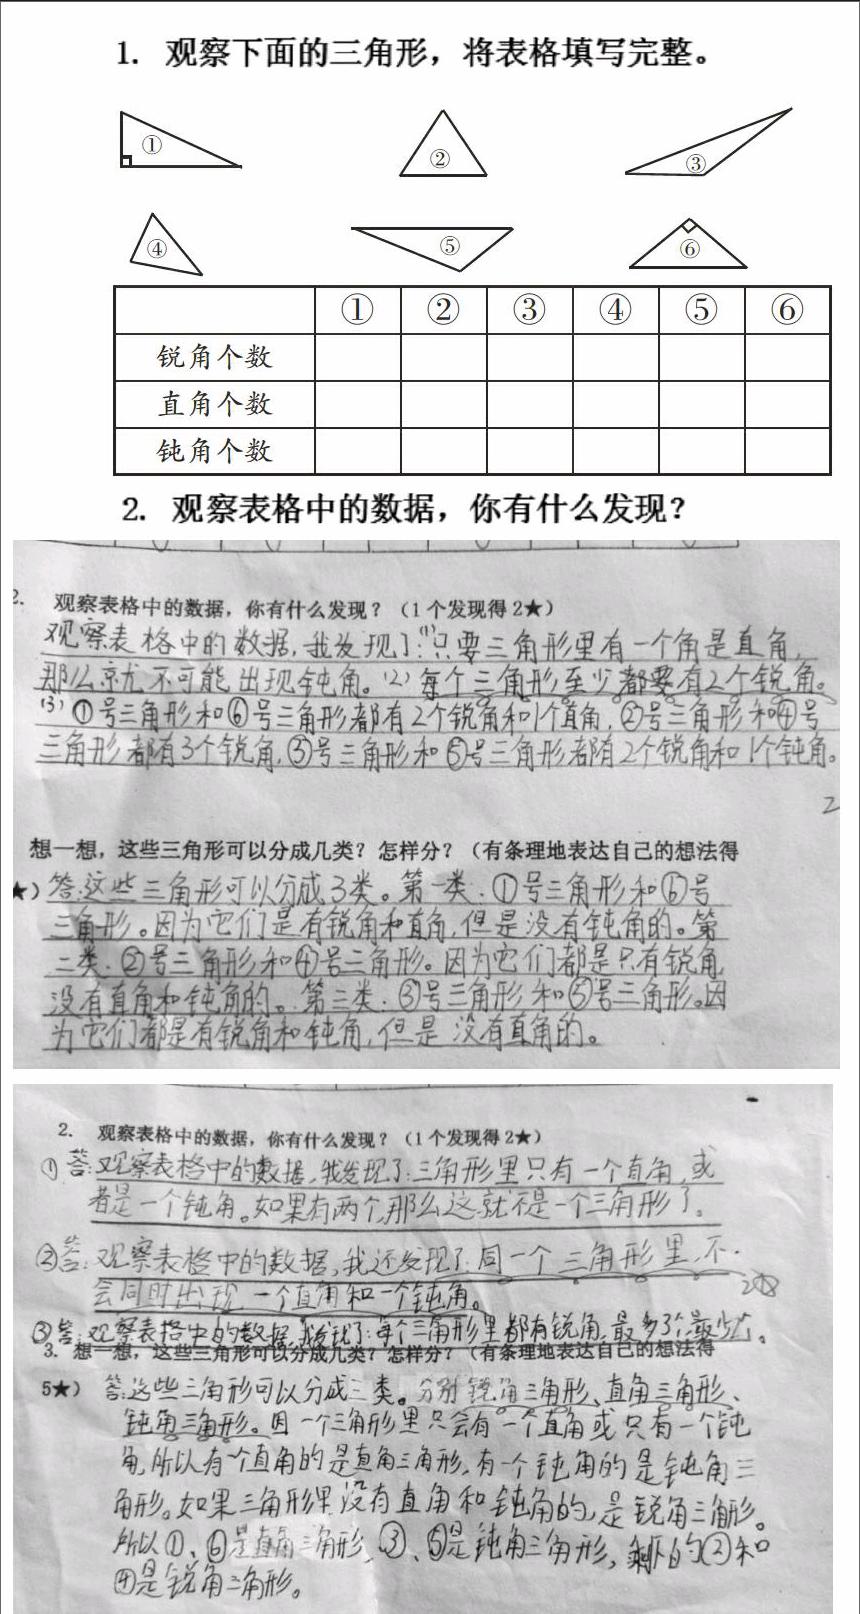 1. 观察下面的三角形，将表格填写完整。
① ② ③
④ ⑤ ⑥
① ② ③ ④ ⑤ ⑥
锐角个数
直角个数
钝角个数
2. 观察表格中的数据，你有什么发现？
2. 观察表格中的数据，你有什么发现？（1个发现得2★）
观察表格中的数据，我发现了：(1)只要三角形里有一个角是直角，
那么就不可能出现钝角。(2)每个三角形至少都要有2个锐角。
(3)①号三角形和⑥号三角形都有2个锐角和1个直角，②号三角形和④号
三角形都有3个锐角，③号三角形和⑤号三角形都有2个锐角和1个钝角。
2
想一想，这些三角形可以分成几类？怎样分？（有条理地表达自己的想法得
★）答：这些三角形可以分成3类。第一类：①号三角形和⑥号
三角形。因为它们是有锐角和直角，但是没有钝角的。第
二类：②号三角形和④号三角形。因为它们都是只有锐角，
没有直角和钝角的。第三类：③号三角形和⑤号三角形。因
为它们都是有锐角和钝角，但是没有直角的。
2. 观察表格中的数据，你有什么发现？（1个发现得2★）
①答：观察表格中的数据，我发现了：三角形里只有一个直角，或
者是一个钝角。如果有两个，那么这就不是一个三角形了。
②答：观察表格中的数据，我还发现了：同一个三角形里，不
会同时出现一个直角和一个钝角。
③答：观察表格中的数据，我发现了：每个三角形里都有锐角，最多3个，最少2个。
3. 想一想，这些三角形可以分成几类？怎样分？（有条理地表达自己的想法得
5★） 答：这些三角形可以分成三类。分别锐角三角形、直角三角形、
钝角三角形。因一个三角形里只会有一个直角或只有一个钝
角，所以有一个直角的是直角三角形，有一个钝角的是钝角三
角形。如果三角形里没有直角和钝角的，是锐角三角形。
所以①、⑥是直角三角形，③、⑤是钝角三角形，剩下的②和
④是锐角三角形。